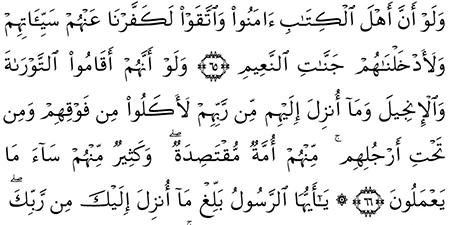 وَلَوْ أَنَّ أَهْلَ ٱلْكِتَٰبِ ءَامَنُوا۟ وَٱتَّقَوْا۟ لَكَفَّرْنَا عَنْهُمْ سَيِّـَٔاتِهِمْ
وَلَأَدْخَلْنَٰهُمْ جَنَّٰتِ ٱلنَّعِيمِ ﴿٦٥﴾ وَلَوْ أَنَّهُمْ أَقَامُوا۟ ٱلتَّوْرَىٰةَ
وَٱلْإِنجِيلَ وَمَآ أُنزِلَ إِلَيْهِم مِّن رَّبِّهِمْ لَأَكَلُوا۟ مِن فَوْقِهِمْ وَمِن
تَحْتِ أَرْجُلِهِم ۚ مِّنْهُمْ أُمَّةٌ مُّقْتَصِدَةٌ ۖ وَكَثِيرٌ مِّنْهُمْ سَآءَ مَا
يَعْمَلُونَ ﴿٦٦﴾ ۞ يَٰٓأَيُّهَا ٱلرَّسُولُ بَلِّغْ مَآ أُنزِلَ إِلَيْكَ مِن رَّبِّكَ ۖ